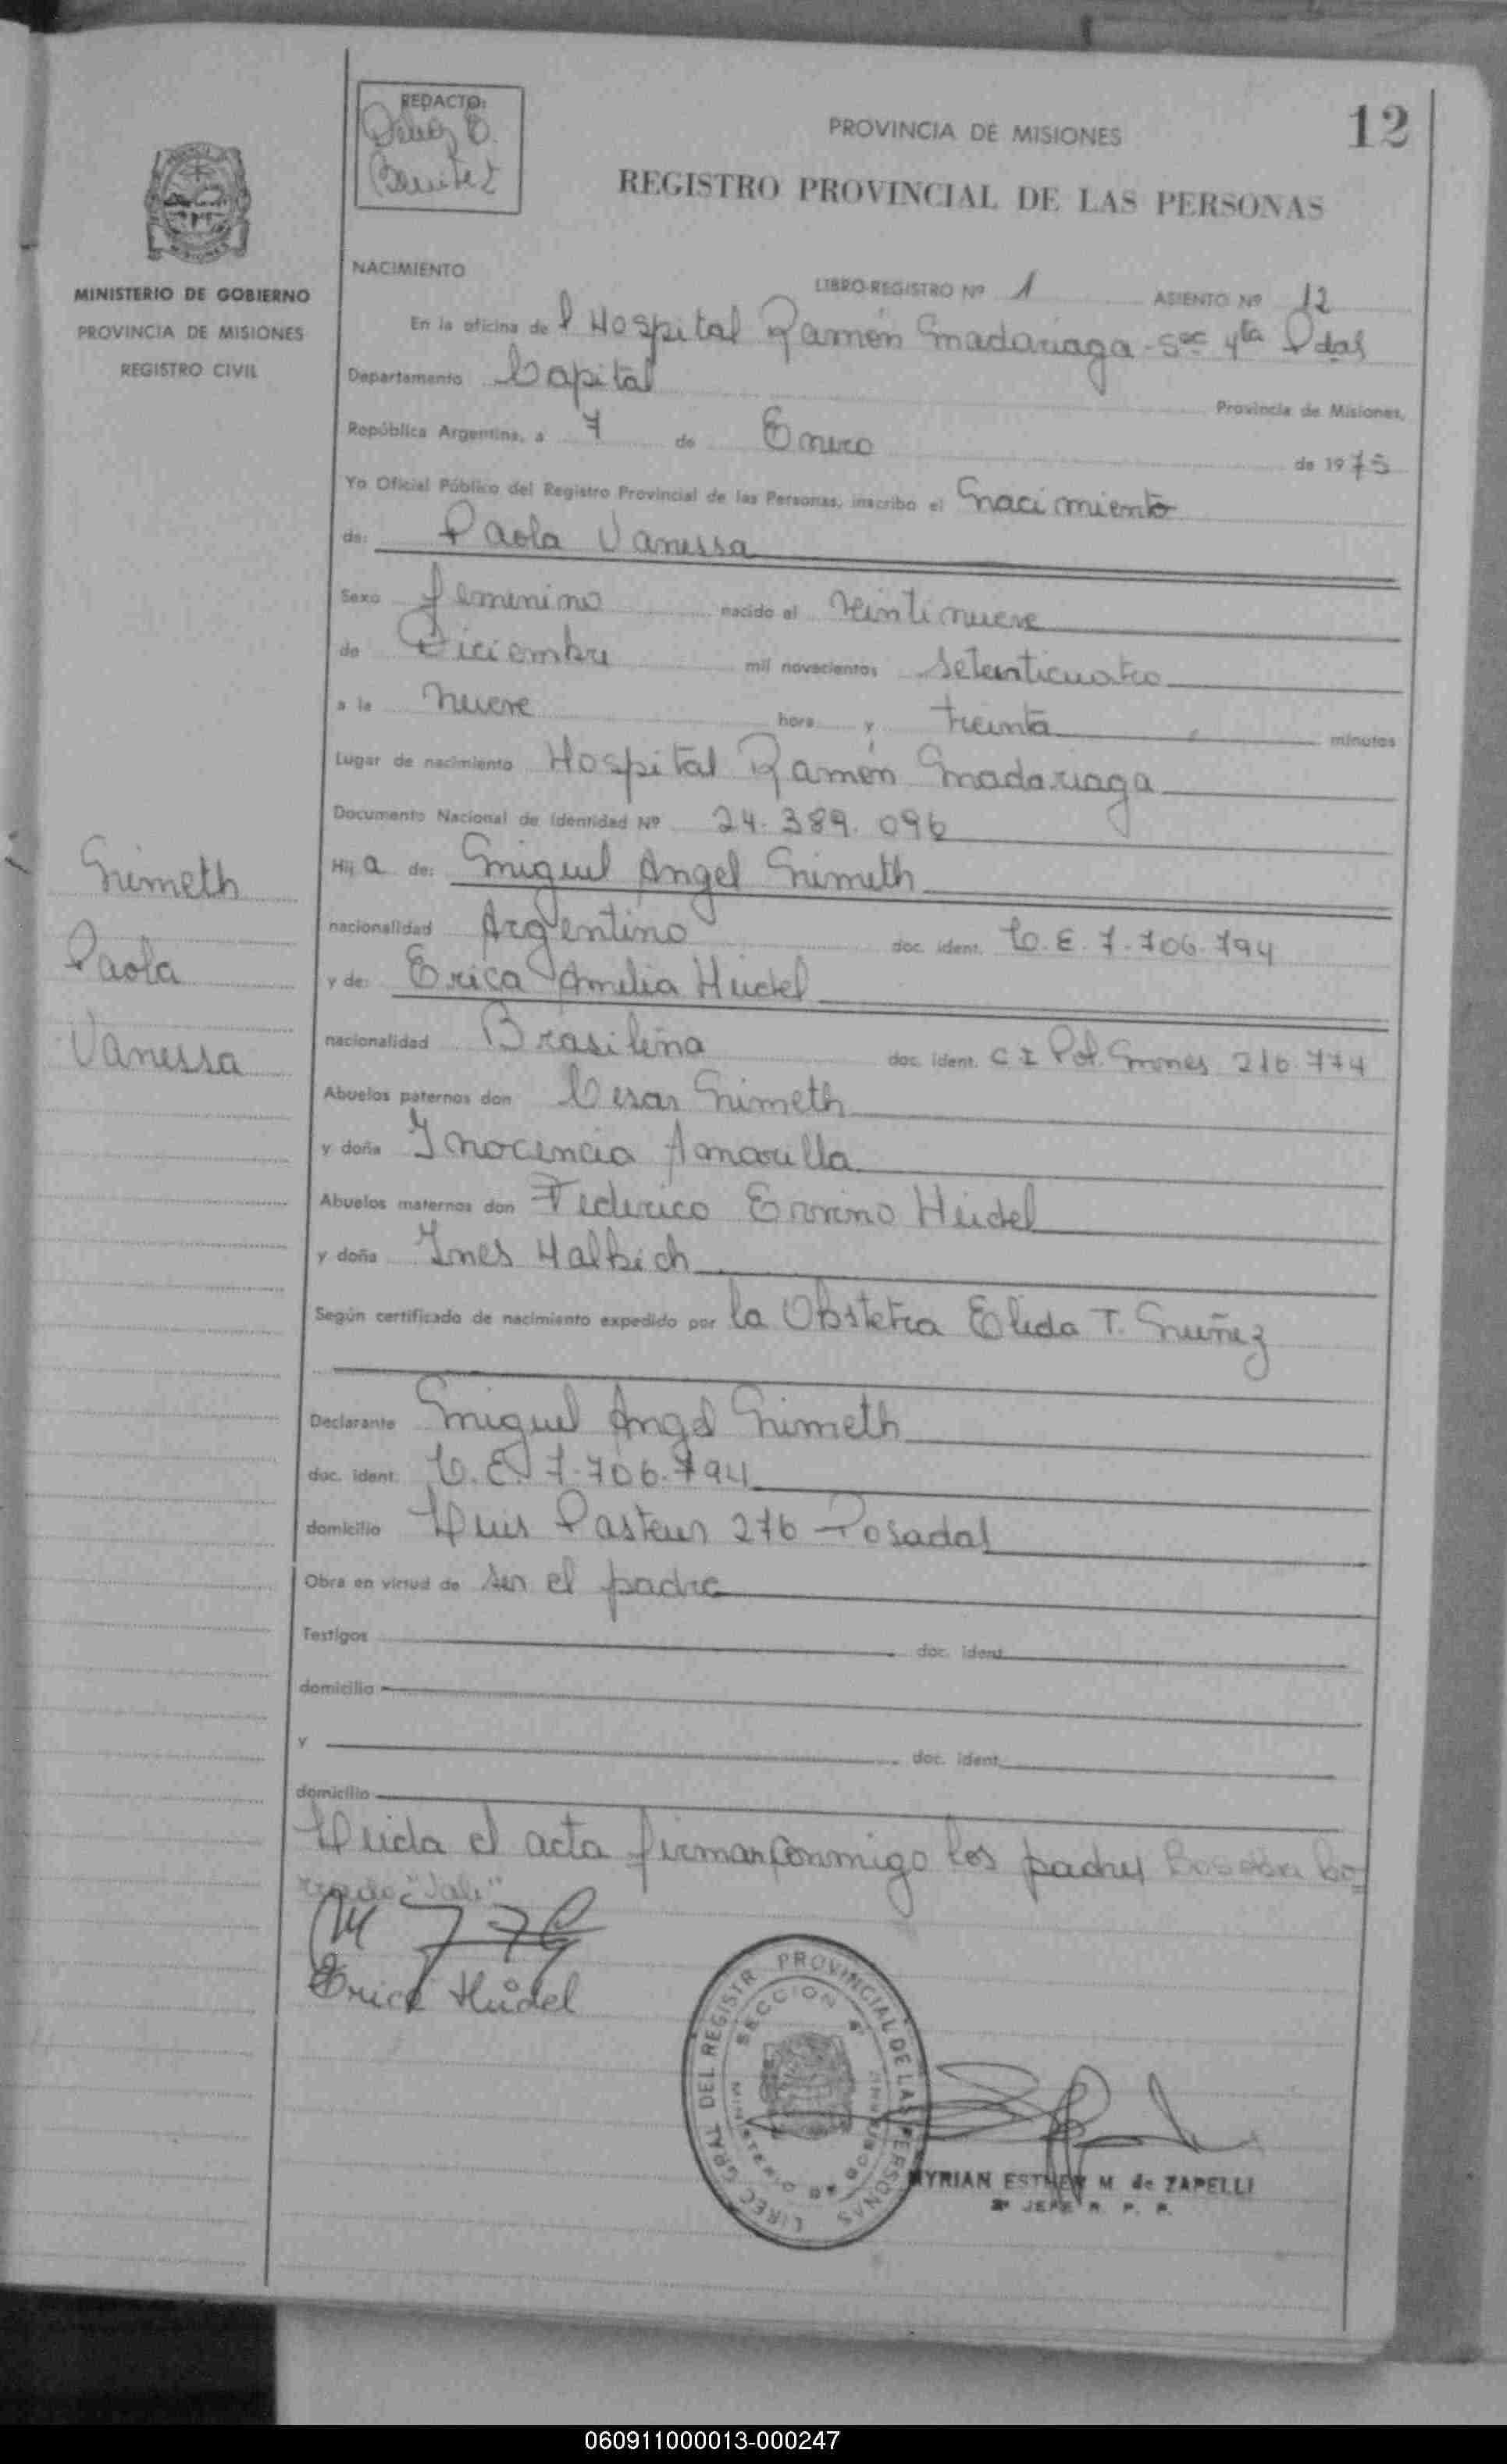 REDACTO:
Benitez
PROVINCIA DE MISIONES
12
REGISTRO PROVINCIAL DE LAS PERSONAS
MINISTERIO DE GOBIERNO
PROVINCIA DE MISIONES
REGISTRO CIVIL
NACIMIENTO
LIBRO-REGISTRO Nº 1 ASIENTO Nº 12
En la oficina de l Hospital Ramón Madariaga - Sec 4ta Pdas
Departamento Capital Provincia de Misiones,
República Argentina, a 7 de Enero de 1975
Yo Oficial Público del Registro Provincial de las Personas, inscribo el Nacimiento
de: Paola Vanessa
Sexo femenino nacido el Veintinueve
de Diciembre mil novecientos Setenticuatro
a la nueve hora y treinta minutos
Lugar de nacimiento Hospital Ramón Madariaga
Documento Nacional de Identidad Nº 24.389.096
Hij a de: Miguel Angel Nimeth
nacionalidad Argentino doc. ident. C.E. 7.706.794
y de: Erica Amelia Heidel
nacionalidad Brasileña doc. ident. C I Pol. Mnes 216.774
Abuelos paternos don Cesar Nimeth
y doña Inocencia Amarilla
Abuelos maternos don Federico Ervino Heidel
y doña Ines Halbich
Según certificado de nacimiento expedido por la Obstetra Elida T. Nuñez
Declarante Miguel Angel Nimeth
doc. ident. C.E. 7.706.794
domicilio Luis Pasteur 276 - Posadas
Obra en virtud de ser el padre
Testigos doc. ident.
domicilio
y doc. ident.
domicilio
Leida el acta firman conmigo los padres
rrado "Vale"
Erica Heidel
Nimeth
Paola
Vanessa
DIREC GRAL DEL REGISTR PROVINCIAL DE LAS PERSONAS
SECCION 4ª
MINISTERIO DE GOBIERNO
MYRIAN ESTHER M de ZAPELLI
2º JEFE R. P. P.
060911000013-000247